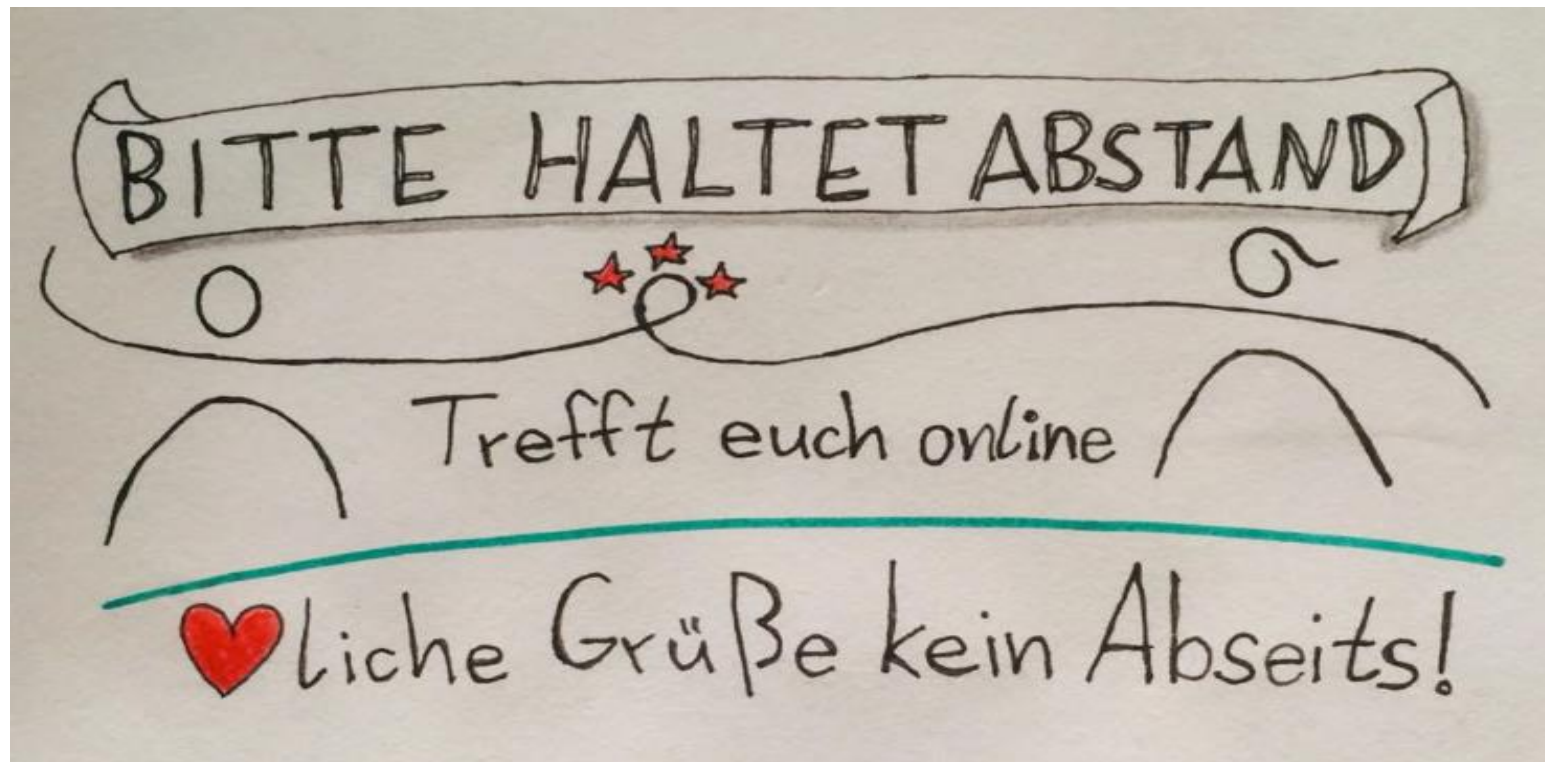 BITTE HALTET ABSTAND
Trefft euch online
❤liche Grüße kein Abseits!